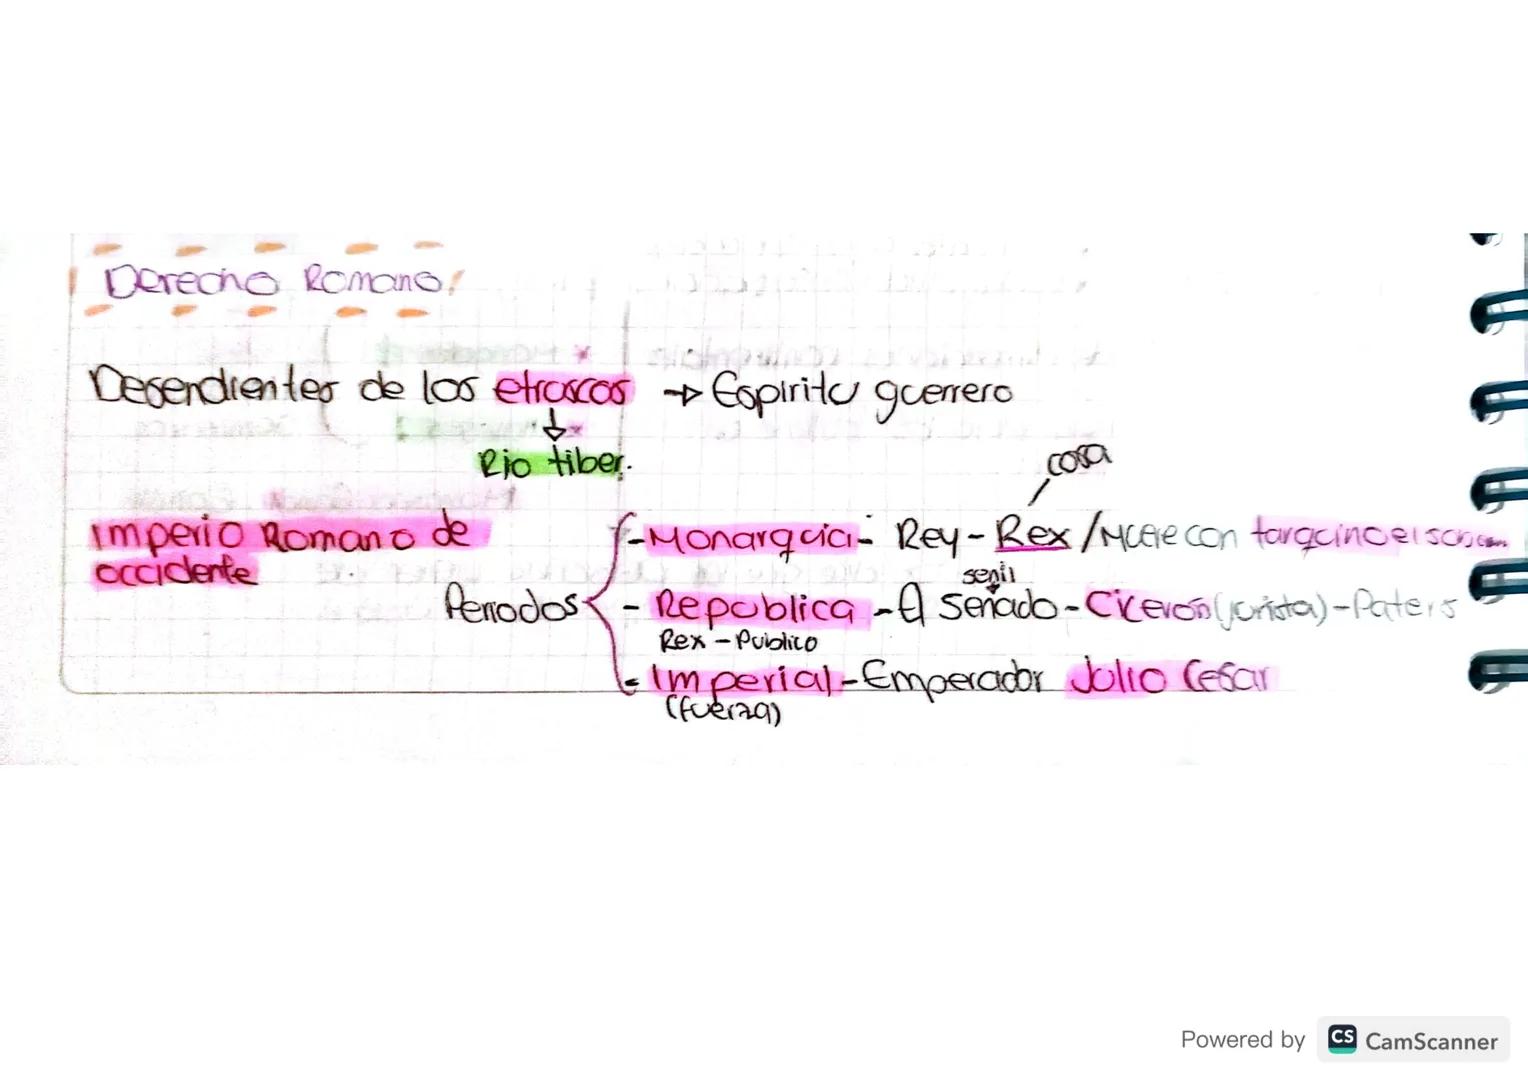 Derecho Romano
Desendientes de los etruscos → Espiritu guerrero
Rio tiber.
cosa
Imperio Romano de occidente
Periodos
- Monarquia - Rey - Rex / Muere con tarquino el
senil
- Republica - El senado - Ciceron (jurista) - Paters
Rex - Publico
- Imperial - Emperador Julio Cesar
(fuerza)
Powered by CS CamScanner